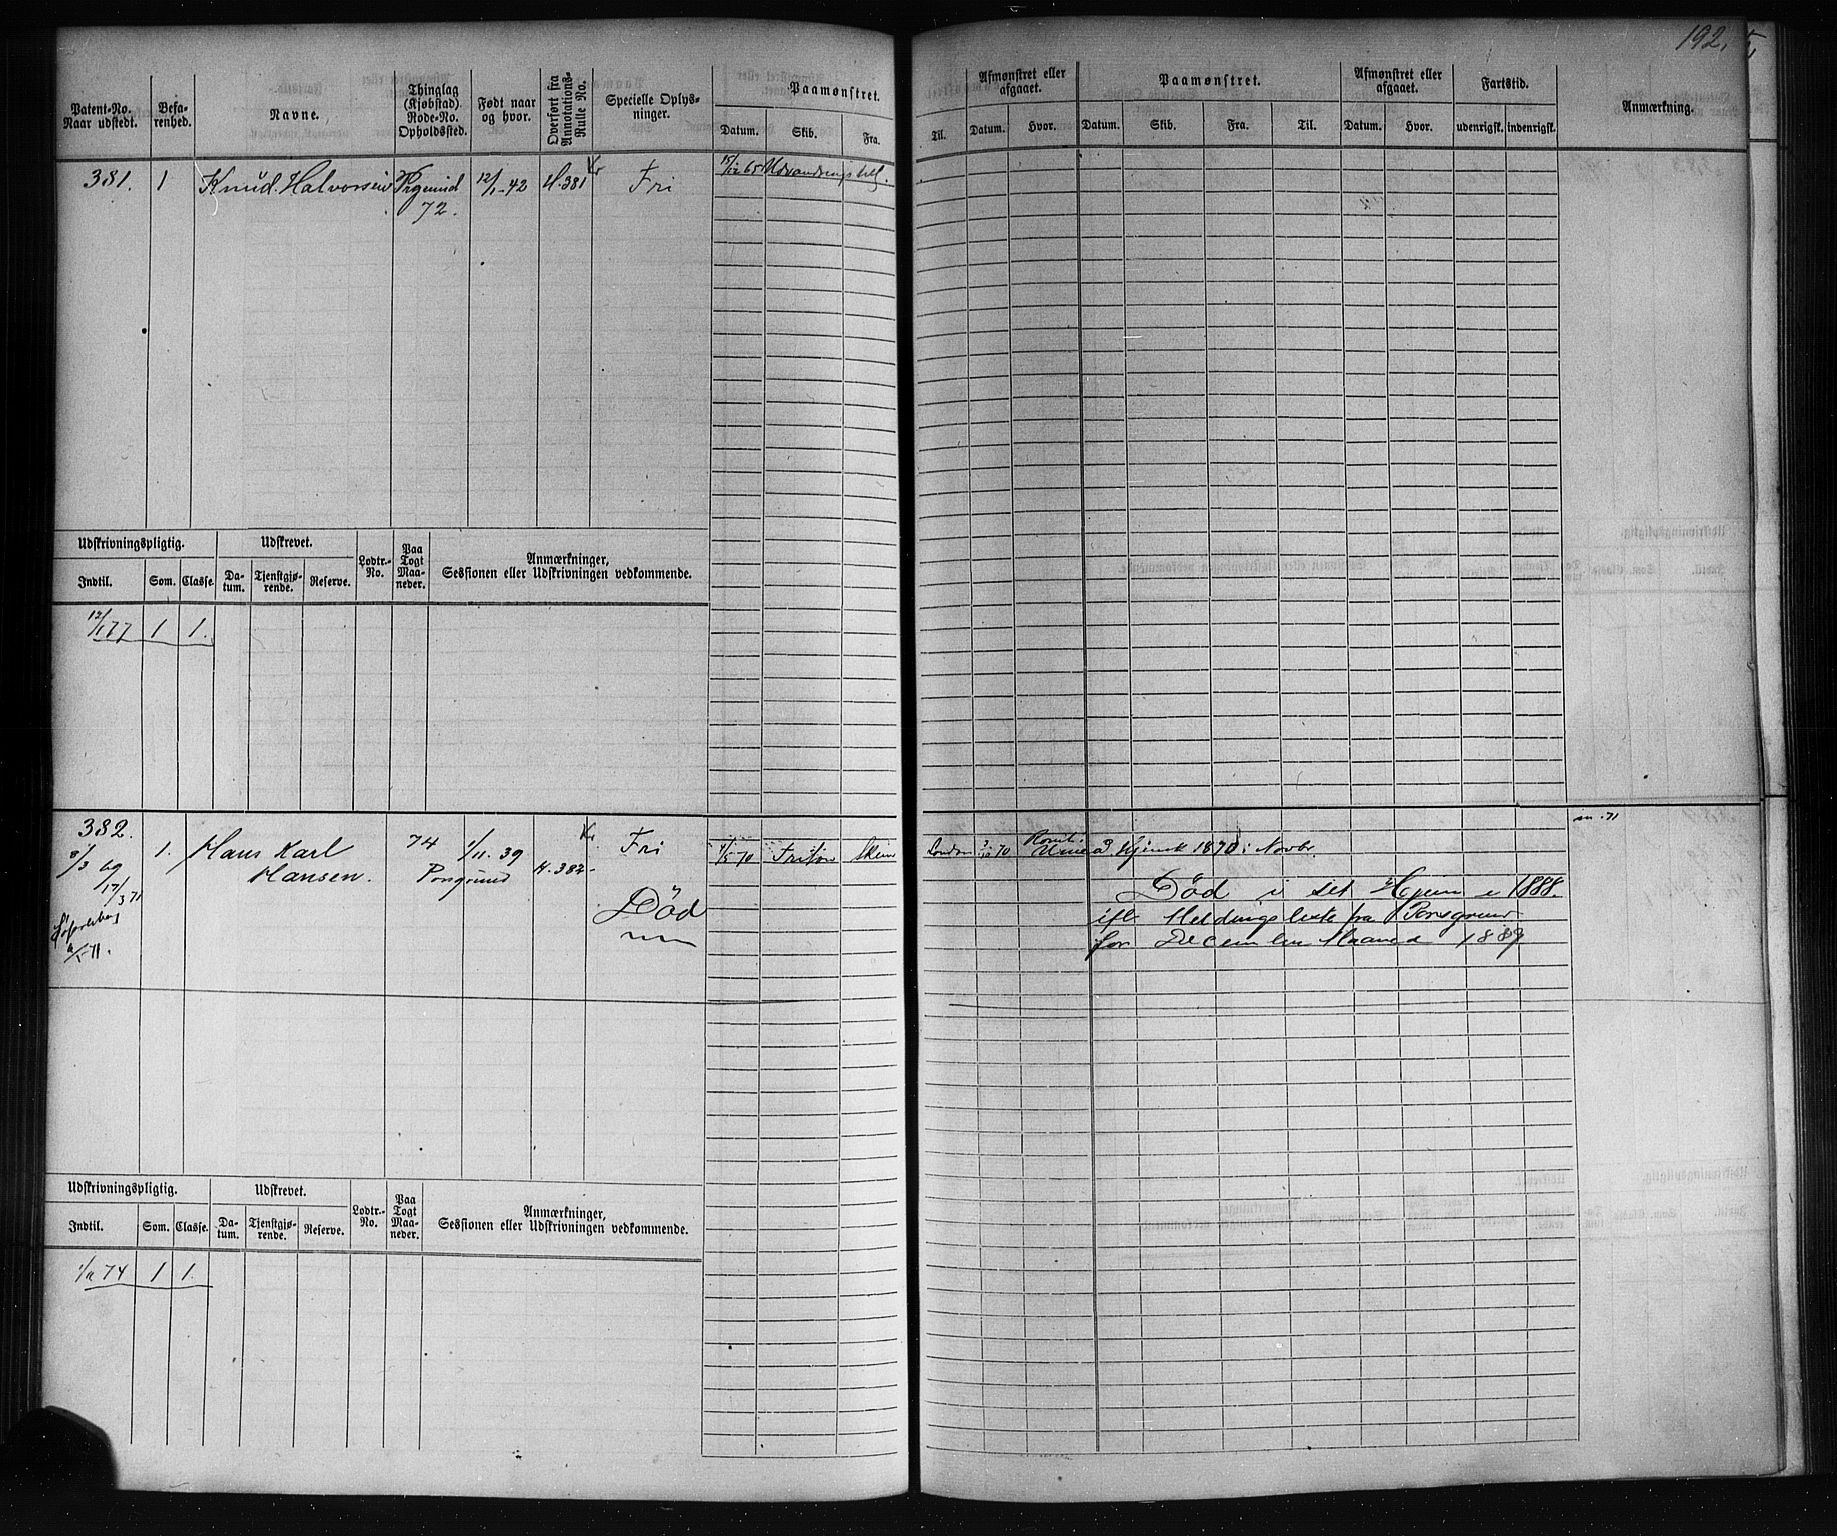 192.
Patent-No. Naar udstedt.
Befarenhed.
Navne.
Thinglag (Kjøbstad) Rode-No. Opholdssted.
Født naar og hvor.
Overført fra Annotations-Rulle No.
Specielle Oplysninger.
Paamønstret.
Datum. Skib. Fra.
Til.
Afmønstret eller afgaaet.
Datum. Hvor.
Paamønstret.
Datum. Skib. Fra. Til.
Afmønstret eller afgaaet.
Datum. Hvor.
Fartstid.
udenrigsk. indenrigsk.
Anmærkning.
381. 1 Knud Halvorsen Prgrund 12/1-42 H.381 Fri 15/12 65 Udvandrings
72.
Udskrivningspligtig. Udskrevet. Lodtr.-No. Paa Togt Maaneder. Anmærkninger, Sessionen eller Udskrivningen vedkommende.
Indtil. Som. Classe. Datum. Tjenstgjørende. Reserve.
12/1 77 1 1.
382. 1. Hans Karl 74 1/11. 39 H. 382 Fri 1/5 70 Skien London 3/10 70 Hjemk 1870 i Novbr.
8/3 69 Hansen. Porsgrund
17/3 71
Død
Død i sit Hjem i 1888.
ifl. Meldingsliste fra Porsgrund
for December Maaned 1889
Udskrivningspligtig. Udskrevet. Lodtr.-No. Paa Togt Maaneder. Anmærkninger, Sessionen eller Udskrivningen vedkommende.
Indtil. Som. Classe. Datum. Tjenstgjørende. Reserve.
1/11 74 1 1.